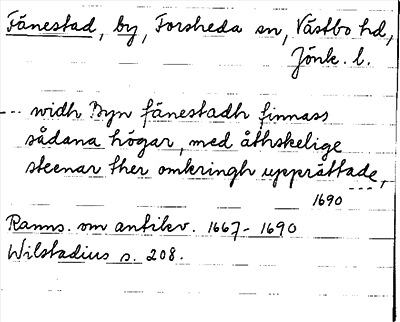 Fänestad, by, Forsheda sn, Västbo hd,
Jönk. l.
--- widh Byn fänestadh finnass
sådana högar, med åthskelige
steenar ther omkringh upprättade,
1690
Ranns. om antikv. 1667-1690
Wilstadius s. 208.